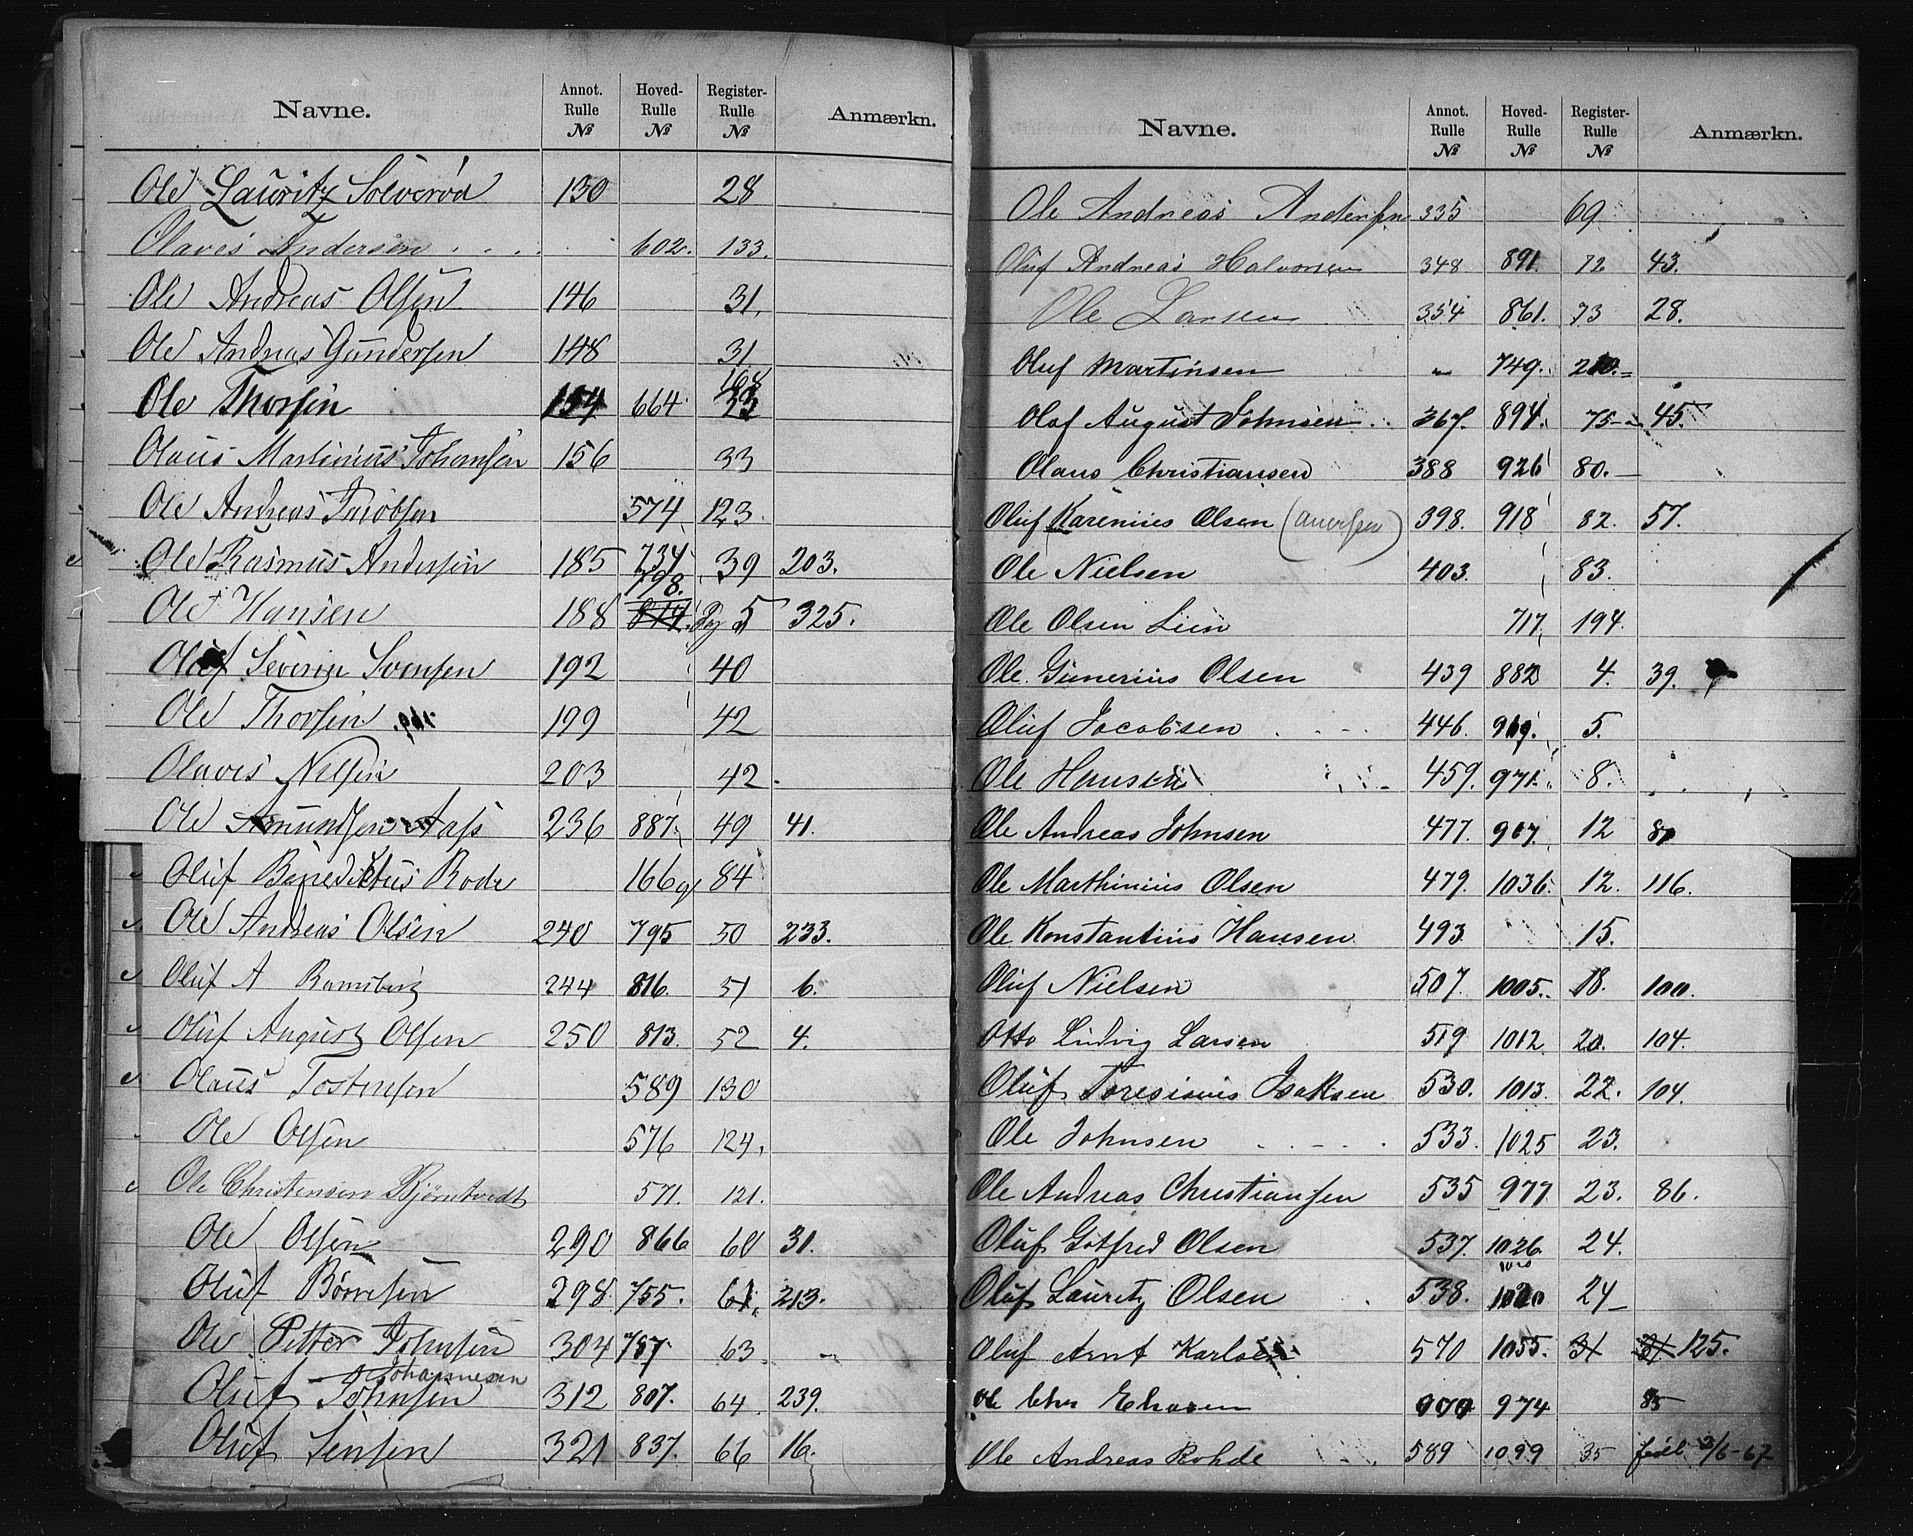 Navne. Annot. Rulle № Hoved-Rulle № Register-Rulle № Anmærkn.
Ole Lauritz Solverød 130 28
Olaves Andersen 602. 133.
Ole Andreas Olsen 146 31.
Ole Andreas Gundersen 148 31
Ole Thorsen 154 664 168 33
Olaus Martinius Johansen 156 33
Ole Andreas Jacobsen 574 123.
Ole Rasmus Andersen 185 734 39 203.
Ole Hansen 188 798. 5 325.
Oluf Severin Svensen 192 40
Ole Thorsen 199 42
Olaves Nilsen 203 42.
Ole Amundsen Aass 236 887. 49 41.
Oluf Benedictus Rode 166 84
Ole Andreas Olsen 240 795 50 233.
Oluf A Ramsberg 244 816. 51 6.
Oluf August Olsen 250 813. 52 4.
Olaus Tostensen 589 130
Ole Olsen 576 124.
Ole Christensen Bjørntvedt 571. 121.
Ole Olsen 290 866 60 31.
Oluf Børresen 298. 755. 61. 213.
Ole Petter Johnsen 304 757. 63.
Johannesen
Oluf Johnsen 312 807. 64. 239.
Oluf Jensen 321 837. 66 16.
Navne. Annot. Rulle № Hoved-Rulle № Register-Rulle № Anmærkn.
Ole Andreas Andersen 335 69
Oluf Andreas Halvorsen 348 891. 72 43.
Ole Larsen 354 861. 73 28.
Oluf Martinsen " 749. 210.
Olaf August Johnsen 367. 894. 75 45.
Olaus Christiansen 388 926 80.
Oluf Karenius Olsen 398. 918 82. 57.
Ole Nielsen 403. 83.
Ole Olsen Lien 717. 194.
Ole Gunerius Olsen 439 882 4. 39.
Oluf Jacobsen 446. 919. 5.
Ole Hansen 459. 971. 8.
Ole Andreas Johnsen 477. 907. 12
Ole Marthinius Olsen 479. 1036. 12. 116.
Ole Konstantius Hansen 493. 15.
Oluf Nielsen 507. 1005. 18. 100.
Otto Ludvig Larsen 519 1012. 20. 104.
Oluf Toresius Isaksen 530. 1013. 22. 104.
Ole Johnsen 533. 1025 23.
Ole Andreas Christiansen 535 977 23. 86.
Oluf Gotfred Olsen 537. 1026. 24.
Oluf Lauritz Olsen 538. 1020 24
Oluf Arnt Karlsen 570 1055. 31 31 125.
Ole Chr 974 85
Ole Andreas Rohde 589 1099 35 2/6-67